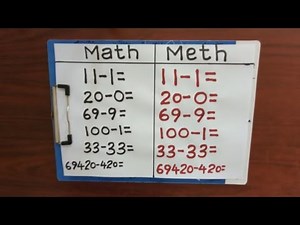 Math Meth
11-1= 11-1=
20-0= 20-0=
69-9= 69-9=
100-1= 100-1=
33-33= 33-33=
69420-420= 69420-420=